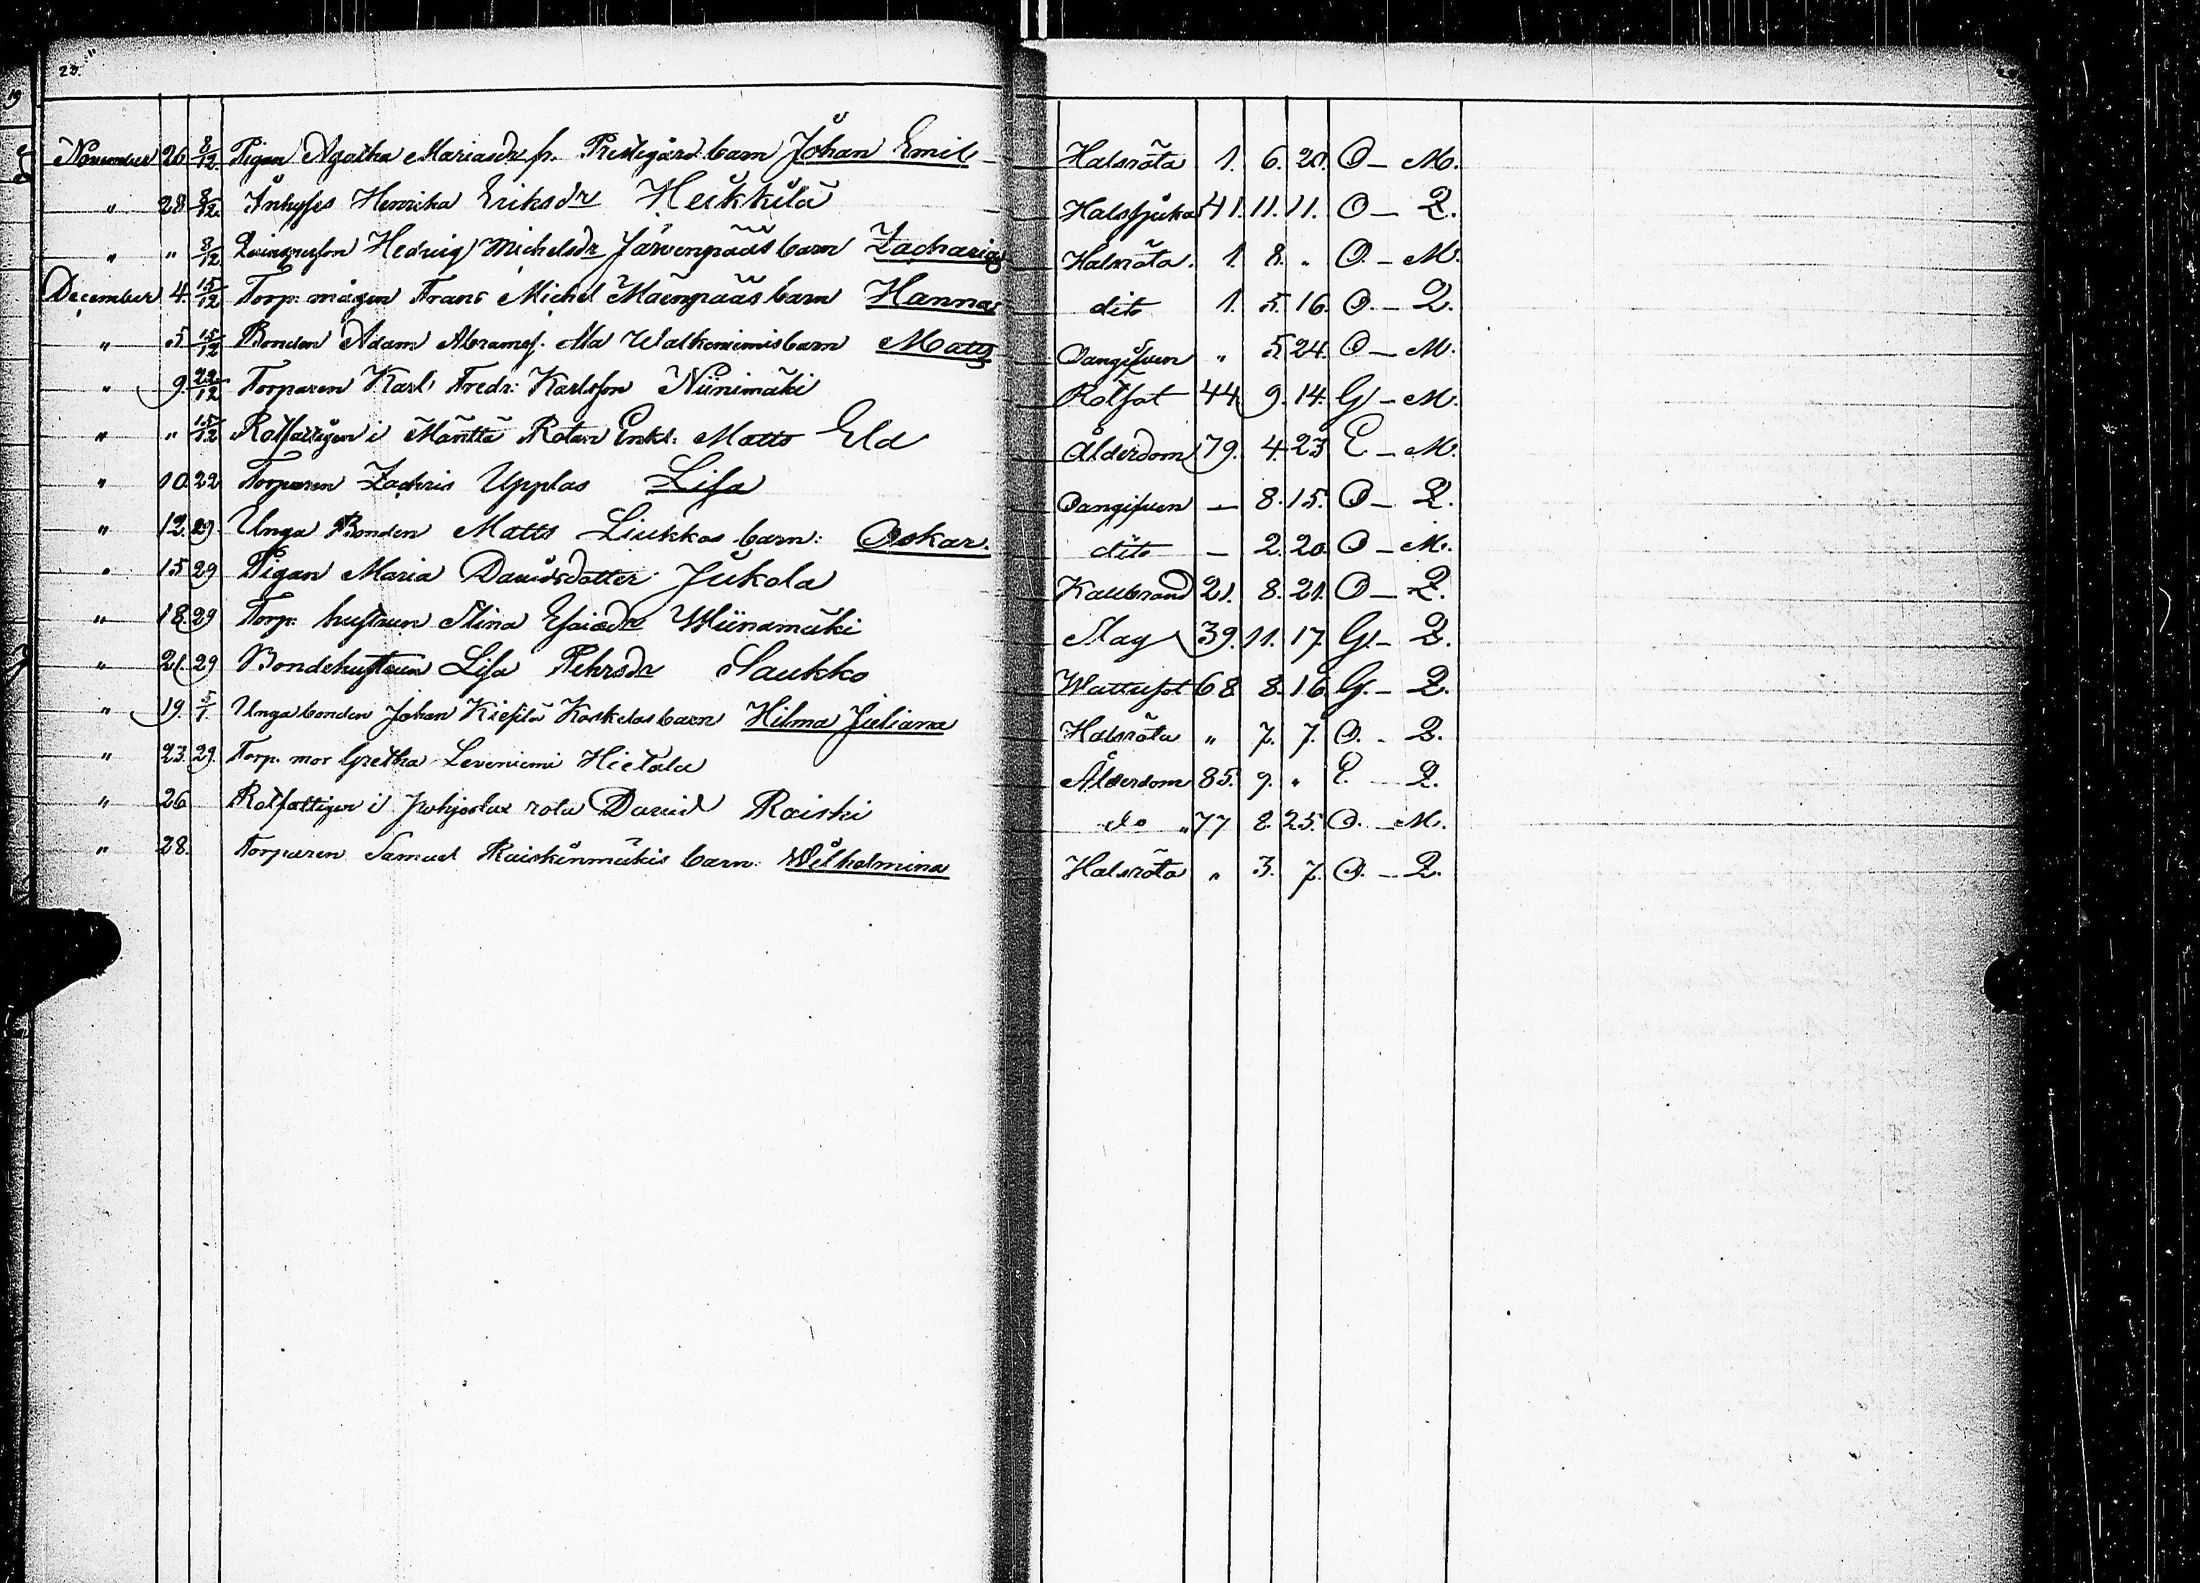 23.
November 26 3/12 Pigan Agatha Mariasdr fr. Prestegård barn Johan Emil Halsröta 1. 6. 20. O - M.
" 28 3/12 Inhyses Henrika Eriksdr Heikkilä Halssjuka 41. 11. 11. O - Q.
" " 3/12 Qvinsperson Hedvig Michelsdr Järvenpääs barn Zacharias Halsröta. 1. 8. " O. - M.
December 4. 15/12 Torp. mågen Frans Michel Mäenpääs barn Hanna dito 1. 5. 16. O. - Q.
" 5 15/12 Bonden Adam Abramss. Ala Walkeniemis barn Matts Oangifven " 5. 24. O - M.
" 9. 22/12 Torparen Karl Fredr: Karlsson Niinimäki Rötfot 44 9. 14. G - M.
" " 15/12 Rotfattigen i Mänttä Rotan Enkl. Matts Eld Ålderdom 79. 4. 23 E - M.
" 10. 22 Torparen Zachris Upplas Lisa Oangifven — 8. 15. O - Q.
" 12. 29. Unga Bonden Matts Liukkos barn: Oskar. dito — 2. 20. O - M.
" 15 29 Pigan Maria Davidsdotter Jukola Kallbrand 21. 8. 21. O - Q.
" 18. 29 Torp. hustrun Stina Esaiædr Wiinamäki Slag 39. 11. 17. G. - Q.
" 21. 29 Bondehustrun Lisa Pehrsdr Saukko Wattusot 68 8. 16 G. - Q.
" 19. 5/1. Unga bonden Johan Koskelas barn Hilma Juliana Halsröta " 7. 7. O. - Q.
" 23. 29. Torp. mor Gretha Leveniemi Hietala Ålderdom 85. 9. " E. - Q.
" 26 Rotfattigen i rota David Raiski do " 77 8. 25. O. - M.
" 28. Torparen Samuel Raiskinmäkis barn: Wilhelmina Halsröta " 3. 7. O. - Q.